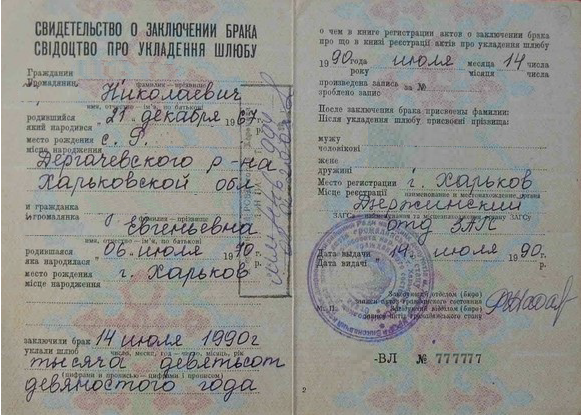 СВИДЕТЕЛЬСТВО О ЗАКЛЮЧЕНИИ БРАКА
СВІДОЦТВО ПРО УКЛАДЕННЯ ШЛЮБУ
Гражданин
Громадянин
фамилия – прізвище
Николаевич
имя, отчество – ім'я, по батькові
родившийся
який народився
21 декабря 1967 г.
р.
место рождения
місце народження
с.
Дергачевского р-на
Харьковской обл
и гражданка
і громадянка
фамилия – прізвище
Евгеньевна
имя, отчество – ім'я, по батькові
родившаяся
яка народилася
06 июля 1970 г.
р.
место рождения
місце народження
г. Харьков
заключили брак
уклали шлюб
14 июля 1990г
число, месяц, год – число, місяць, рік
тысяча девятьсот
(цифрами и прописью – цифрами і прописом)
девяностого года
о чем в книге регистрации актов о заключении брака
про що в книзі реєстрації актів про укладення шлюбу
1990 года июля месяца 14 числа
року місяця числа
произведена запись
зроблено запис
за №
После заключения брака присвоены фамилии:
Після укладення шлюбу присвоєні прізвища:
мужу
чоловікові
жене
дружині
Место регистрации
Місце реєстрації
г. Харьков
наименование и местонахождение органа
Дзержинский
ЗАГСа
отд ЗАГС
Дата выдачи
Дата видачі
14 июля 1990 г.
р.
М. П.
Заведующий отделом (бюро)
записи актов гражданского состояния
Завідуючий відділом (бюро)
запису актів громадянського стану
-ВЛ № 777777
2